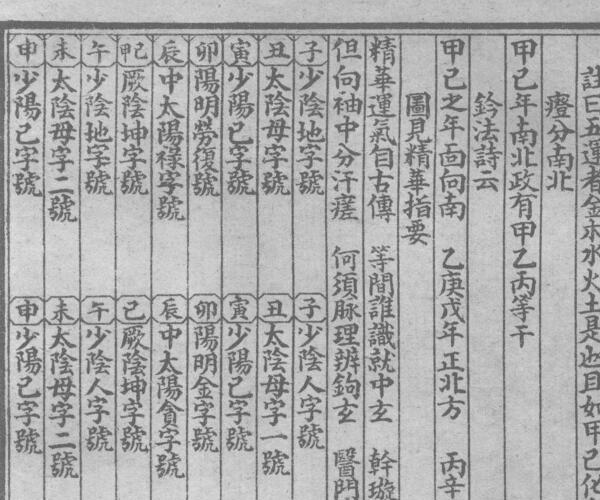 註曰五運者金木水火土是也且如甲己化
瘂分南北
甲己年南北政有甲乙丙等干
鈐法詩云
甲己之年面向南　乙庚戊年正北方　丙辛
圖見精華指要
精華運氣自古傳　等閒誰識就中玄　幹璇
但向袖中分汗瘥　何須脉理辨鉤玄　醫門
子少陰地字號
丑太陰母字號
寅少陽己字號
卯陽明勞復號
辰中太陽祿字號
巳厥陰坤字號
午少陰地字號
未太陰母字二號
申少陽己字號
子少陰人字號
丑太陰母字一號
寅少陽己字號
卯陽明金字號
辰中太陽貪字號
巳厥陰坤字號
午少陰人字號
未太陰母字二號
申少陽己字號